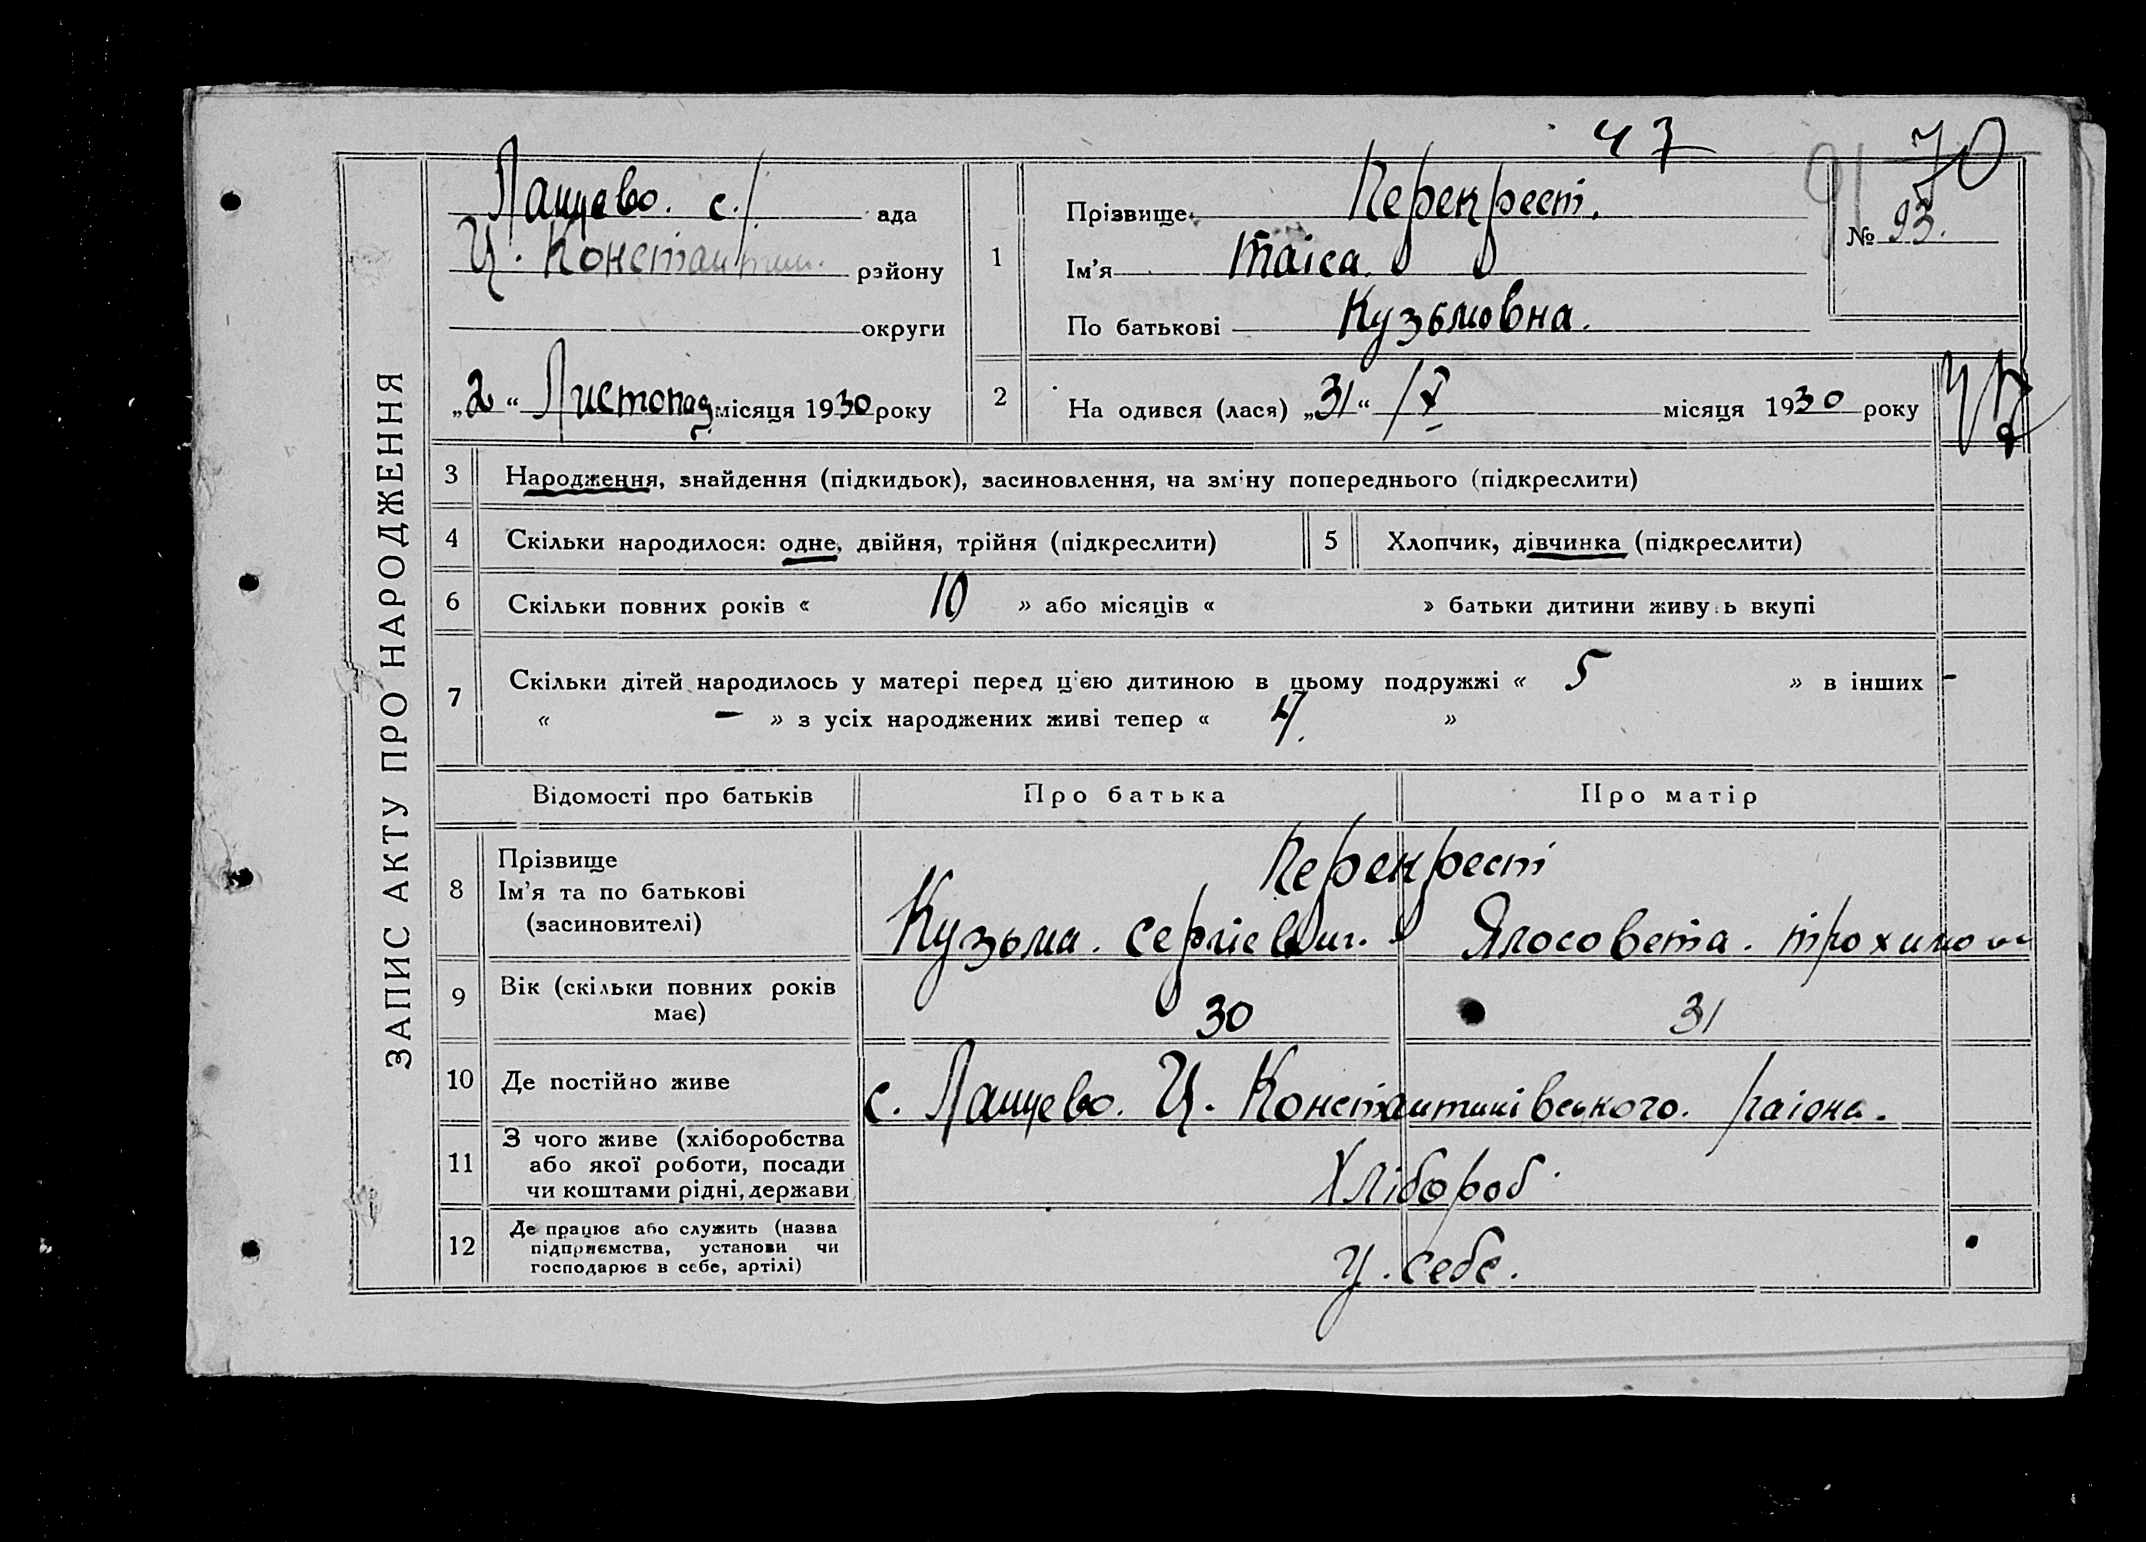 47
70
91
ЗАПИС АКТУ ПРО НАРОДЖЕННЯ
Лящево. с./ ада
Ц. Констант рэйону
округи
„2“ Листопад місяця 1930 року
1
Прізвище Перекрест.
Ім'я Таіса.
По батькові Кузьмовна.
№ 93.
2 На одився (лася) „31“ /X місяця 1930 року
3 Народження, знайдення (підкидьок), засиновлення, на зміну попереднього (підкреслити)
4 Скільки народилося: одне, двійня, трійня (підкреслити) 5 Хлопчик, дівчинка (підкреслити)
6 Скільки повних років « 10 » або місяців « » батьки дитини живу ь вкупі
7 Скільки дітей народилось у матері перед ц'єю дитиною в цьому подружжі « 5 » в інших -
« — » з усіх народжених живі тепер « 4. »
Відомості про батьків Про батька Про матір
8 Прізвище Перекрест
Ім'я та по батькові
(засиновителі) Кузьма. Сергіевич. Ялосовета. Трохимов
9 Вік (скільки повних років
має) 30 31
10 Де постійно живе с. Лящево. Ц. Константинівського. раіона.
11 З чого живе (хліборобства
або якої роботи, посади
чи коштами рідні, держави Хлібороб.
12 Де працює або служить (назва
підприємства, установи чи
господарює в себе, артілі) У. себе.